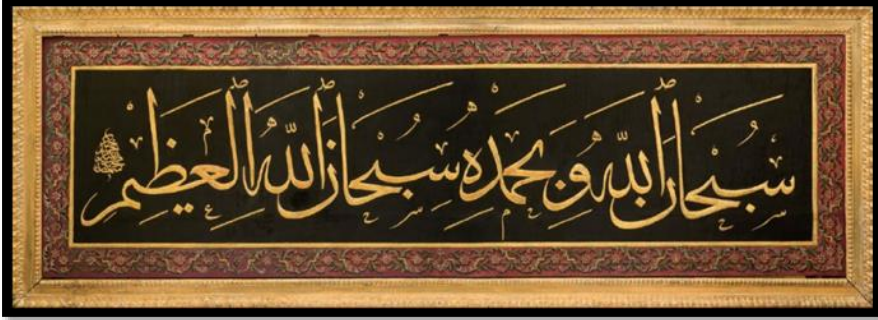 سُبْحَانَ ٱللّٰهِ وَبِحَمْدِهِ سُبْحَانَ ٱللّٰهِ ٱلْعَظِيمِ